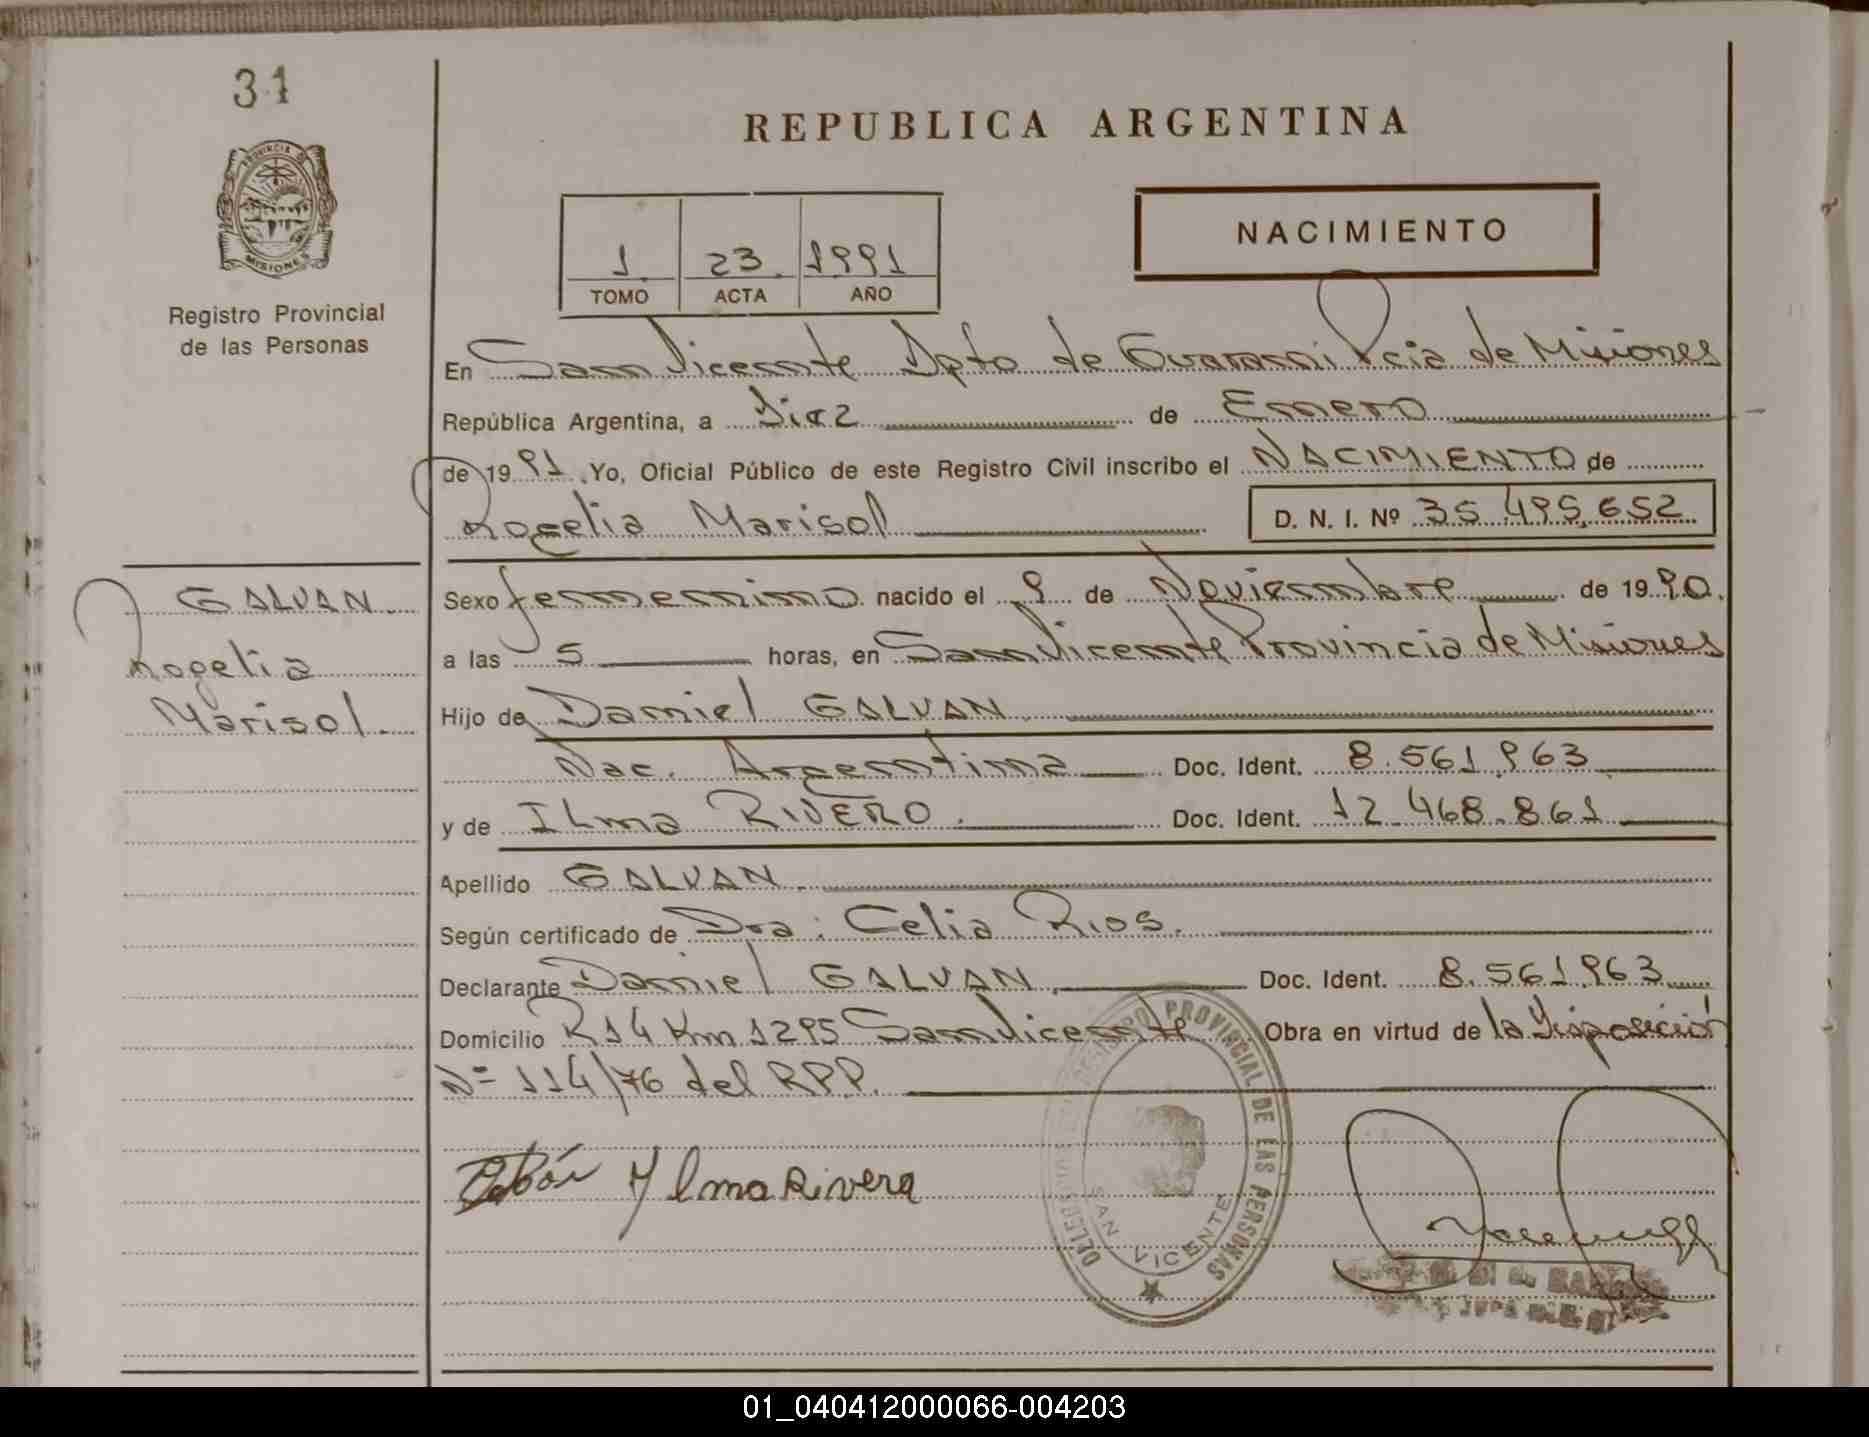 31
REPUBLICA ARGENTINA
PROVINCIA DE
MISIONES
NACIMIENTO
1 23 1991
TOMO ACTA AÑO
Registro Provincial
de las Personas
En San Vicente Dpto de Guarani Pcia de Misiones
República Argentina, a Diez de Enero
de 1991. Yo, Oficial Público de este Registro Civil inscribo el NACIMIENTO de
Rogelia Marisol D. N. I. Nº 35.495.652
GALVAN
Rogelia
Marisol
Sexo femenino nacido el 9 de Noviembre de 1990.
a las 5 horas, en San Vicente Provincia de Misiones
Hijo de Daniel GALVAN
Nac. Argentina Doc. Ident. 8.561.963
y de ILma RIVERO. Doc. Ident. 12.468.861
Apellido GALVAN.
Según certificado de Dra: Celia Rios.
Declarante Daniel GALVAN. Doc. Ident. 8.561.963
Domicilio R14 Km 1295 San Vicente Obra en virtud de la Disposición
Nº 114/76 del RPP.
Ylma Rivera
PROVINCIAL DE LAS PERSONAS
SAN VICENTE
01_040412000066-004203